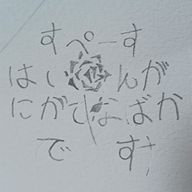 すぺーす
はい んが
にがてなばか
で す